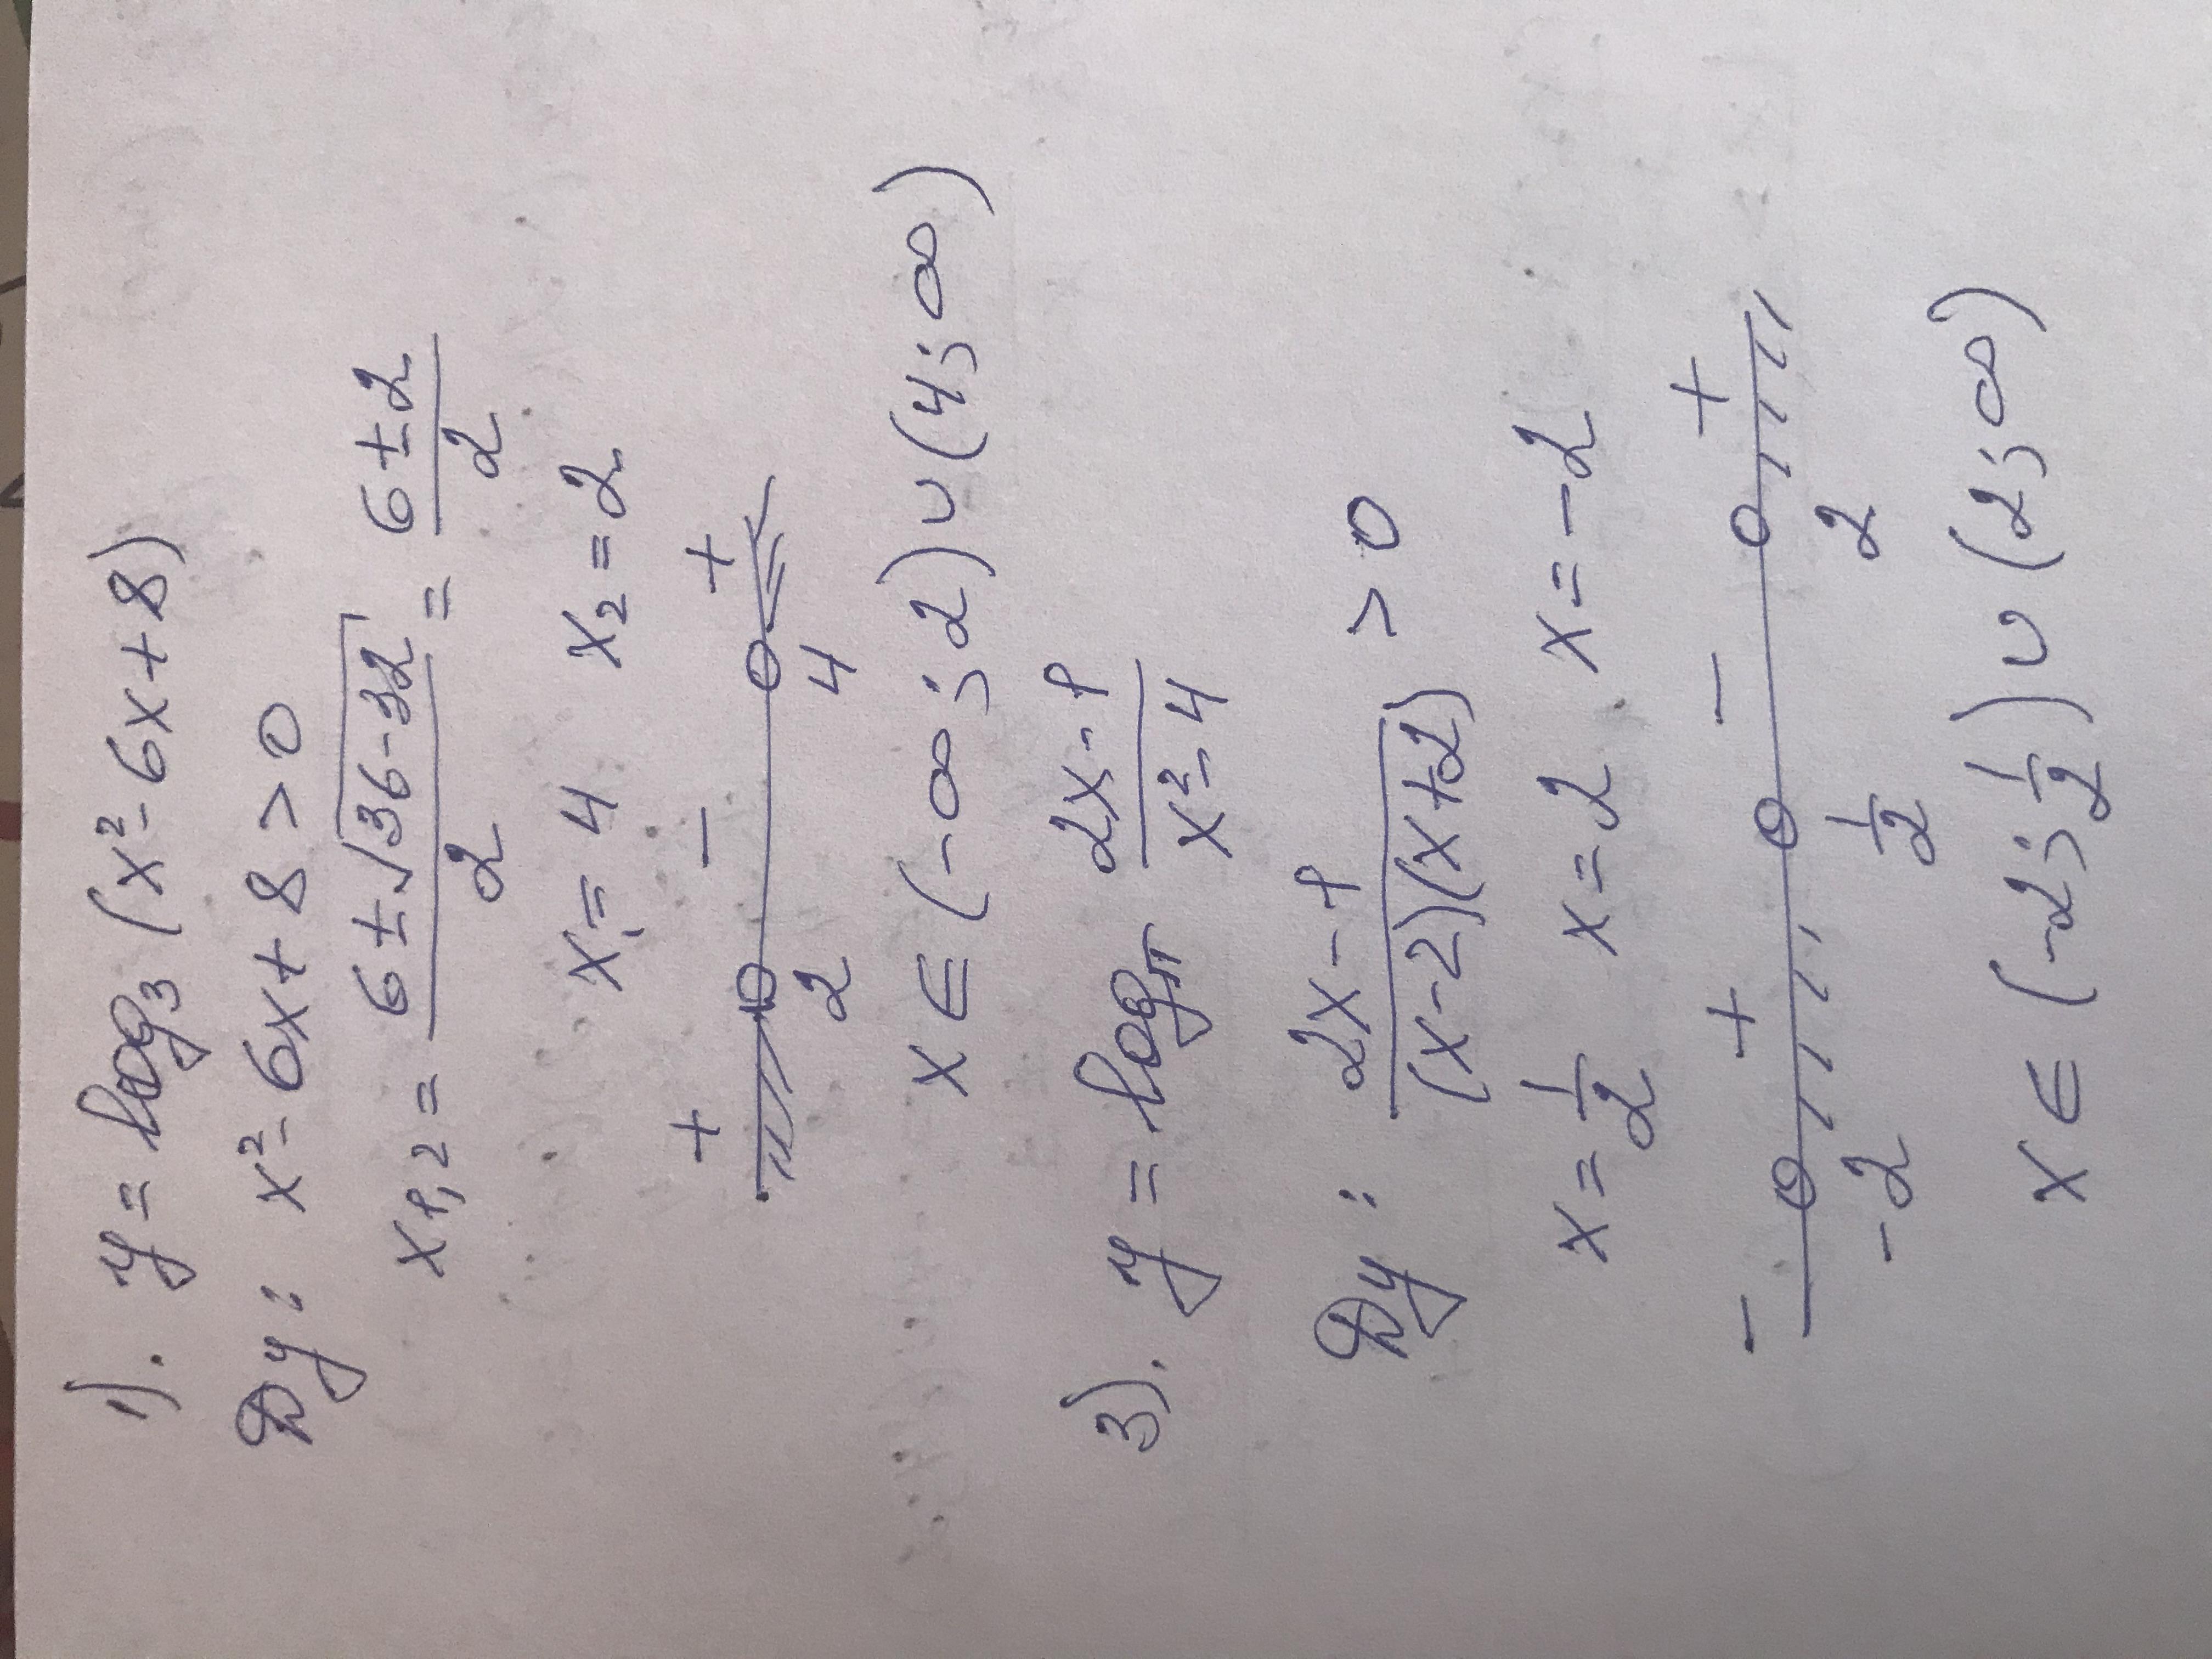 1). y = log₃ (x² - 6x + 8)
Dy: x² - 6x + 8 > 0
x₁,₂ = (6 ± √(36-32))/2 = (6 ± 2)/2
x₁ = 4 x₂ = 2
+ - +
2 4
x ∈ (-∞; 2) ∪ (4; ∞)
3). y = log_π (2x-1)/(x²-4)
Dy: (2x-1)/((x-2)(x+2)) > 0
x = 1/2 x = 2 x = -2
- + - +
-2 1/2 2
x ∈ (-2; 1/2) ∪ (2; ∞)